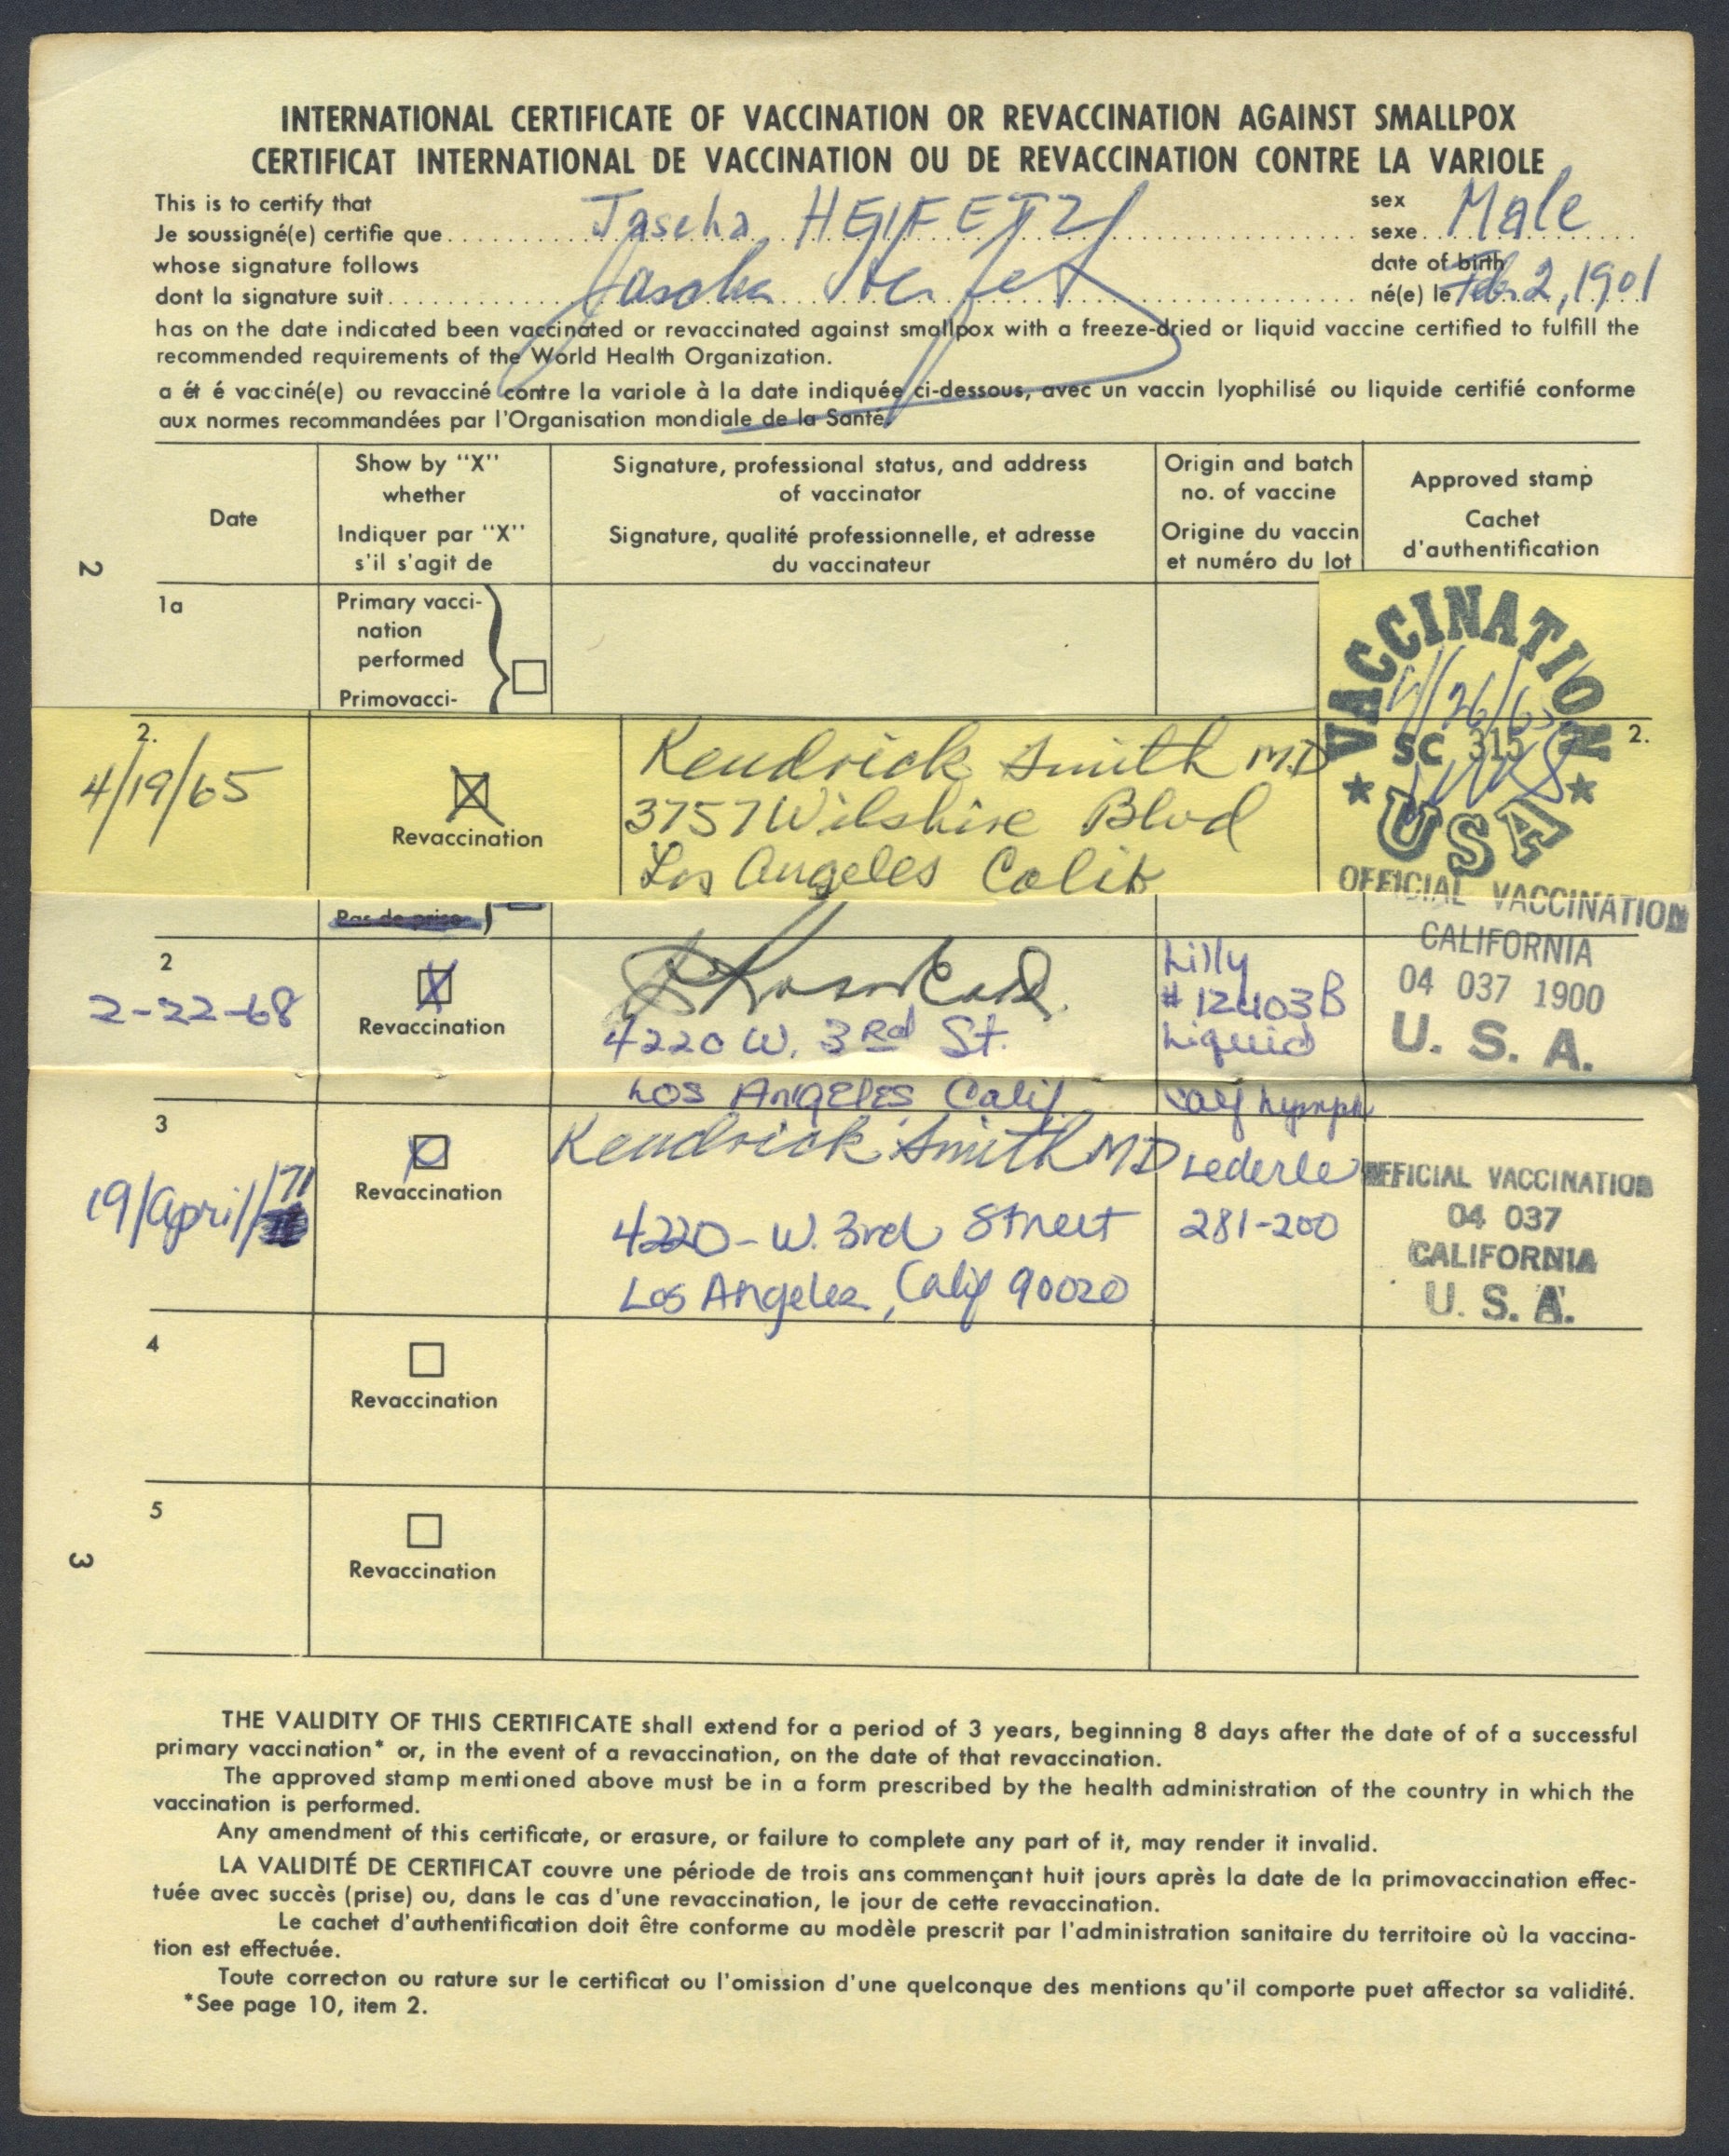 INTERNATIONAL CERTIFICATE OF VACCINATION OR REVACCINATION AGAINST SMALLPOX
CERTIFICAT INTERNATIONAL DE VACCINATION OU DE REVACCINATION CONTRE LA VARIOLE
This is to certify that
Je soussigné(e) certifie que Jascha HEIFETZ
sex
sexe Male
whose signature follows
dont la signature suit Jascha Heifetz
date of birth
né(e) le Feb. 2, 1901
has on the date indicated been vaccinated or revaccinated against smallpox with a freeze-dried or liquid vaccine certified to fulfill the
recommended requirements of the World Health Organization.
a ét é vacciné(e) ou revacciné contre la variole à la date indiquée ci-dessous, avec un vaccin lyophilisé ou liquide certifié conforme
aux normes recommandées par l'Organisation mondiale de la Santé.
Date
Show by "X"
whether
Indiquer par "X"
s'il s'agit de
Signature, professional status, and address
of vaccinator
Signature, qualité professionnelle, et adresse
du vaccinateur
Origin and batch
no. of vaccine
Origine du vaccin
et numéro du lot
Approved stamp
Cachet
d'authentification
2
1a
Primary vacci-
nation
performed
Primovacci-
VACCINATION
4/26/65
SC 315
USA
2.
4/19/65
Revaccination
Kendrick Smith M.D
3757 Wilshire Blvd
Los Angeles Calif
2.
Pas de prise
2
2-22-68
Revaccination
4220 W. 3Rd St.
Los Angeles Calif
Lilly
# 12403B
Liquid
Calf Lymph
OFFICIAL VACCINATION
CALIFORNIA
04 037 1900
U. S. A.
3
19/April/71
Revaccination
Kendrick Smith MD
4220-W. 3rd Street
Los Angeles, Calif 90020
Lederle
281-200
OFFICIAL VACCINATION
04 037
CALIFORNIA
U. S. A.
4
Revaccination
5
Revaccination
3
THE VALIDITY OF THIS CERTIFICATE shall extend for a period of 3 years, beginning 8 days after the date of of a successful
primary vaccination* or, in the event of a revaccination, on the date of that revaccination.
The approved stamp mentioned above must be in a form prescribed by the health administration of the country in which the
vaccination is performed.
Any amendment of this certificate, or erasure, or failure to complete any part of it, may render it invalid.
LA VALIDITÉ DE CERTIFICAT couvre une période de trois ans commençant huit jours après la date de la primovaccination effec-
tuée avec succès (prise) ou, dans le cas d'une revaccination, le jour de cette revaccination.
Le cachet d'authentification doit être conforme au modèle prescrit par l'administration sanitaire du territoire où la vaccina-
tion est effectuée.
Toute correcton ou rature sur le certificat ou l'omission d'une quelconque des mentions qu'il comporte puet affector sa validité.
*See page 10, item 2.